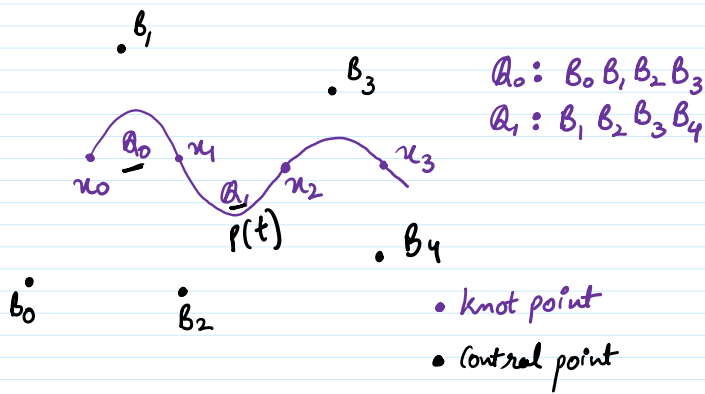 B1
B3
Q0: B0 B1 B2 B3
Q1: B1 B2 B3 B4
Q0
x1
x3
x0
Q1
x2
P(t)
B4
B0
B2
• knot point
• Control point